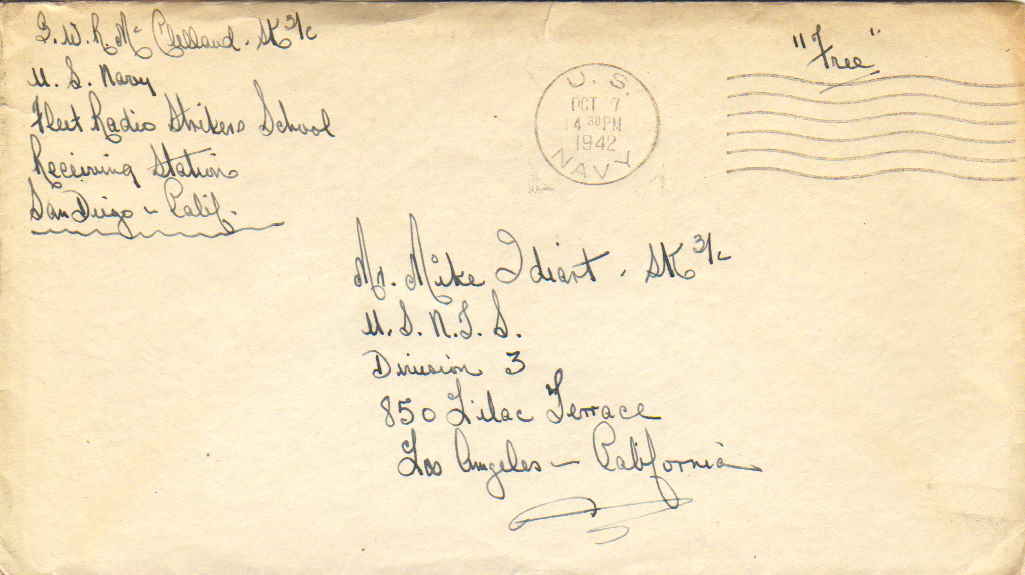 G. W. R. Mc Clelland. SK 3/c
U. S. Navy
Fleet Radio Strikers School
Receiving Station
San Diego - Calif.
"Free"
U. S.
OCT 7
4 30 PM
1942
NAVY
Mr. Mike Idiart. SK 3/c
U. S. N. T. S.
Division 3
850 Lilac Terrace
Los Angeles - California